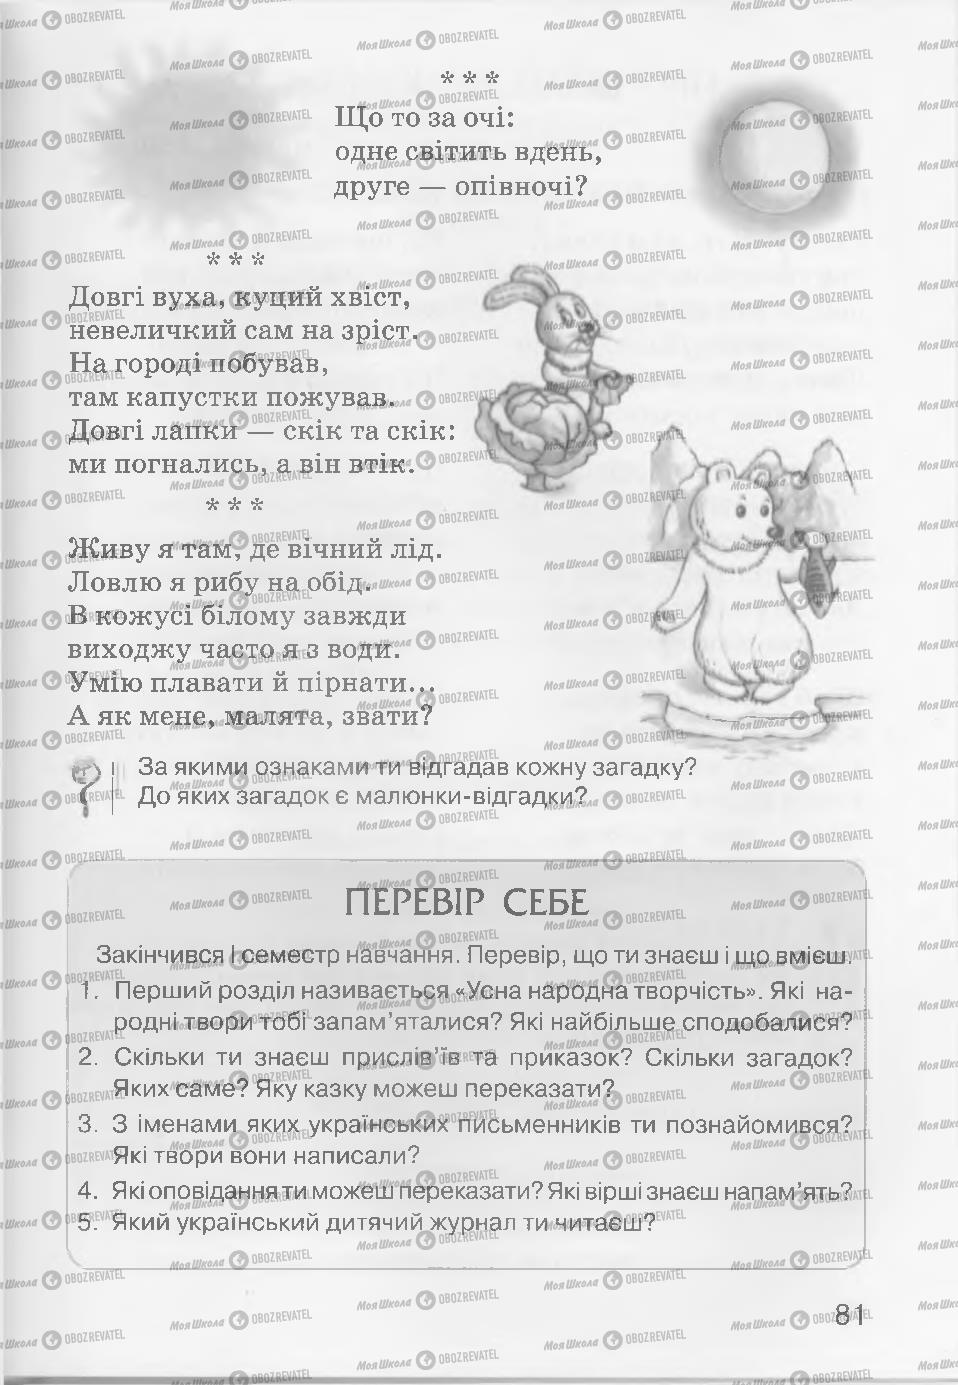 * * *
Що то за очі:
одне світить вдень,
друге — опівночі?
* * *
Довгі вуха, куций хвіст,
невеличкий сам на зріст.
На городі побував,
там капустки пожував.
Довгі лапки — скік та скік:
ми погнались, а він втік.
* * *
Живу я там, де вічний лід.
Ловлю я рибу на обід.
В кожусі білому завжди
виходжу часто я з води.
Умію плавати й пірнати...
А як мене, малята, звати?
За якими ознаками ти відгадав кожну загадку?
До яких загадок є малюнки-відгадки?
ПЕРЕВІР СЕБЕ
Закінчився І семестр навчання. Перевір, що ти знаєш і що вмієш.
1. Перший розділ називається «Усна народна творчість». Які на-
родні твори тобі запам’яталися? Які найбільше сподобалися?
2. Скільки ти знаєш прислів’їв та приказок? Скільки загадок?
Яких саме? Яку казку можеш переказати?
3. З іменами яких українських письменників ти познайомився?
Які твори вони написали?
4. Які оповідання ти можеш переказати? Які вірші знаєш напам’ять?
5. Який український дитячий журнал ти читаєш?
81
МояШкола OBOZREVATEL